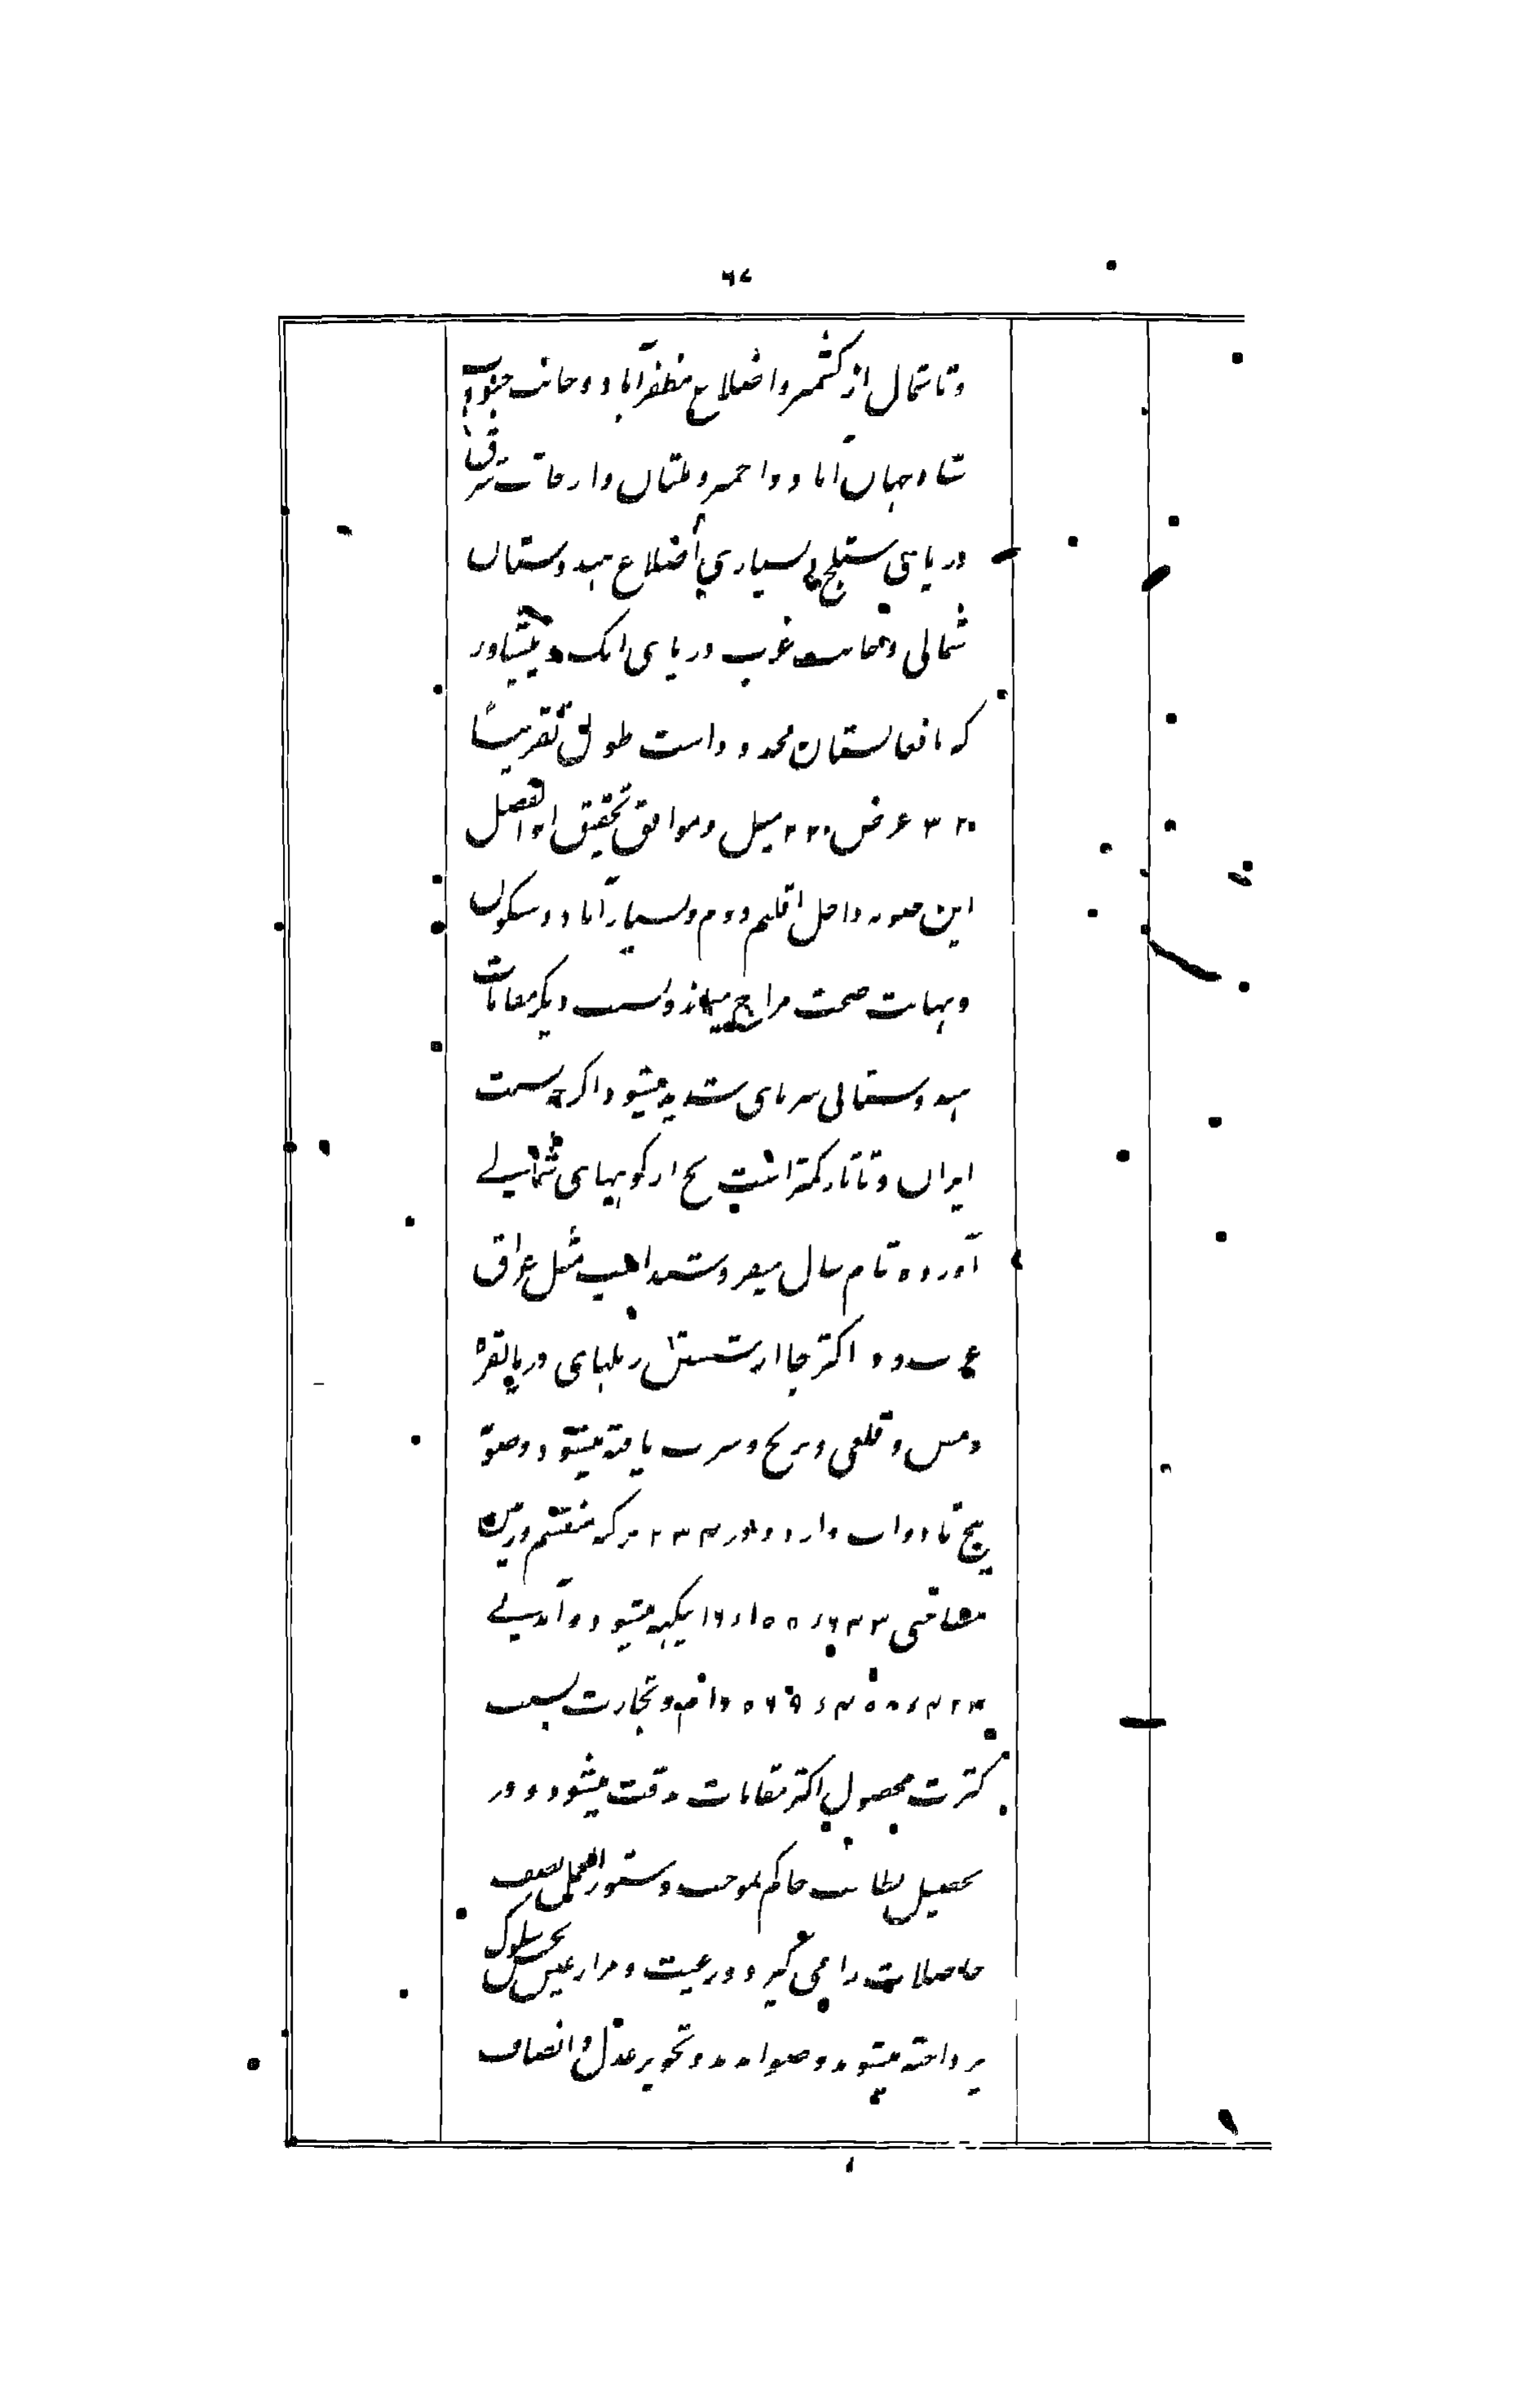 ٦٧
و تا شمال از کشمیر و اضلاع مظفرآباد و جانب جنوب از
شاه جهان آباد و اجمیر و ملتان و از جانب شرق از
دریای ستلج بسیاری اضلاع هندوستان
شمالی و بجانب غرب دریای اتک و پیشاور
که بافغانستان محدود است طولش تقریباً
۳۲۰ عرض ۲۲۰ میل و موافق تحقیق ابوالفضل
این صوبه داخل اقلیم دوم و بسیار آباد و مسکون
و نهایت صحت مزاج میباشد و نسبت دیگر مقامات
هندوستانی سرمای شدید میشود اگرچه نسبت
ایران و تاتار کمتر است یخ از کوههای شمالی
آورده تمام سال میفروشند اسب مثل عراق
میشود و اکثر جا از شستن ریگهای دریا نقره
و مس و قلعی و برنج و سرب یافته میشود و صوبه
پنج تا دوآب دارد و در ۲۳۴ پرگنه منقسم و زمین
بیگهه میشود و آمدنی
دام و تجارت بسبب
کثرت محصول اکثر مقامات دقت میشود و در
تحصیل نظامت حاکم بموجب دستورالعمل نصف
حاصلات را می گیرد و رعیت و مزارعین بحسن سلوک
پرداخته میشوند و صوابدید و تجویز عدل و انصاف